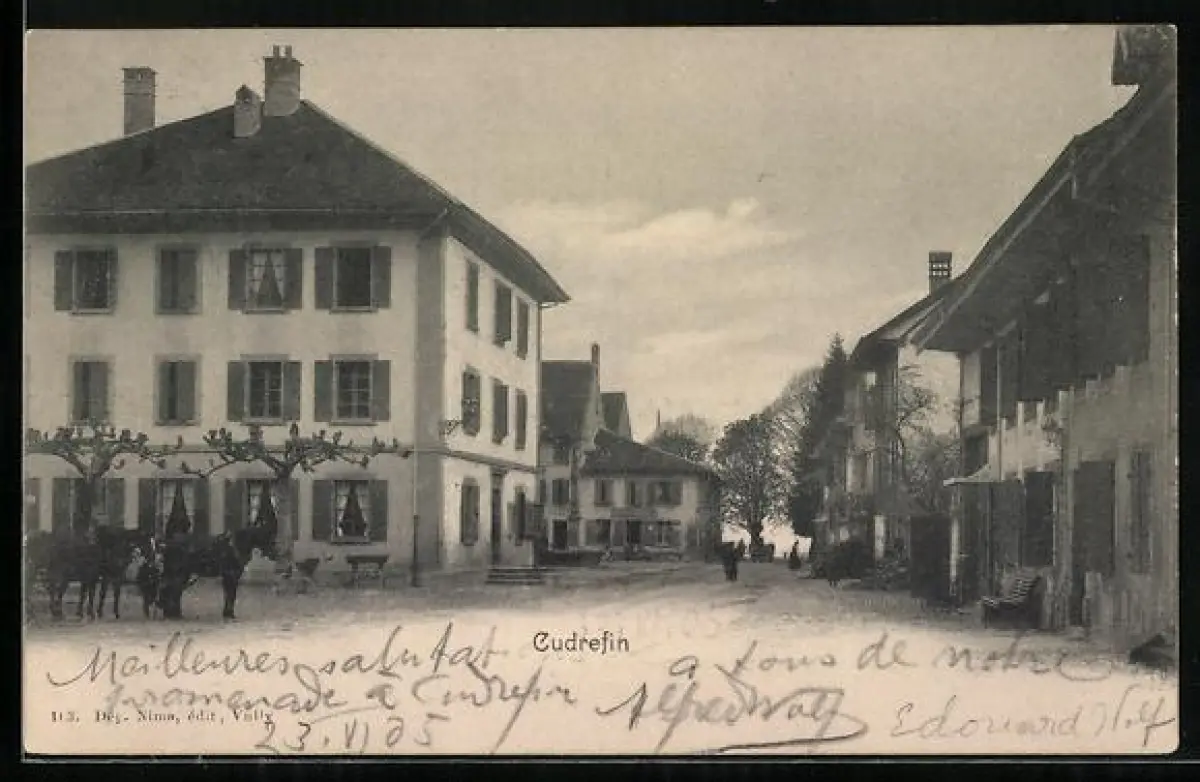 Cudrefin
Meilleures salutat a tous de notre
promenade à Cudrefin Alfred Wolf Edouard Wolf
113. Dég. Nimo, édit, Vully
23. VI 05